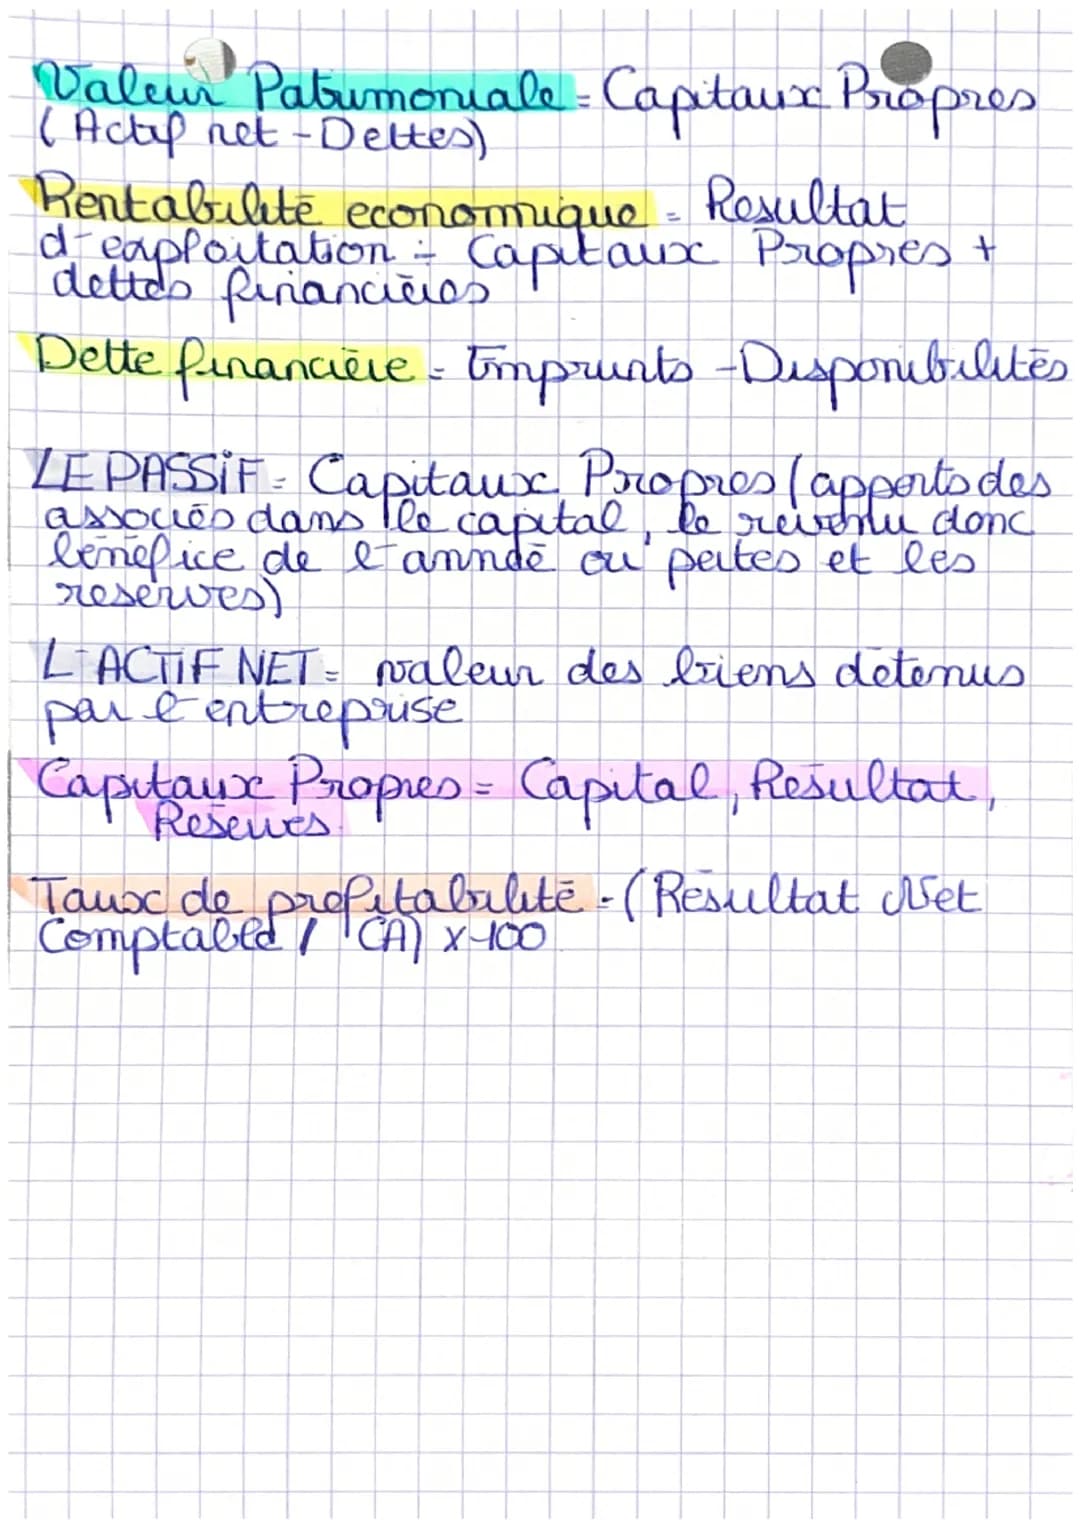 Valeur Patrimoniale = Capitaux Propres
(Actif net - Dettes)
Rentabilité economique = Resultat
d'exploitation ÷ Capitaux Propres +
dettes financières
Dette financière = Emprunts - Disponibilités
LE PASSiF = Capitaux Propres (apports des
associés dans le capital, le revenu donc
bénéfice de l'année ou pertes et les
reserves)
L'ACTIF NET = valeur des biens détenus
par l'entreprise
Capitaux Propres = Capital, Résultat,
Réserves.
Taux de profitabilité = (Résultat Net
Comptable / CA) x 100